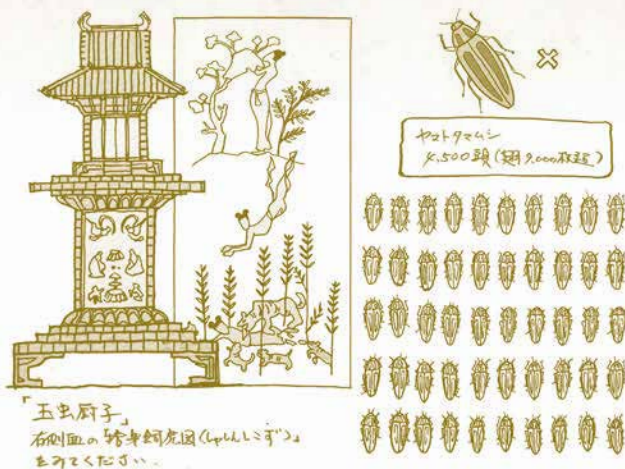 ヤマトタマムシ
4,500頭(翅9,000枚超)
「玉虫厨子」
右側面の「捨身飼虎図(しゃしんしこず)」
をみてください.